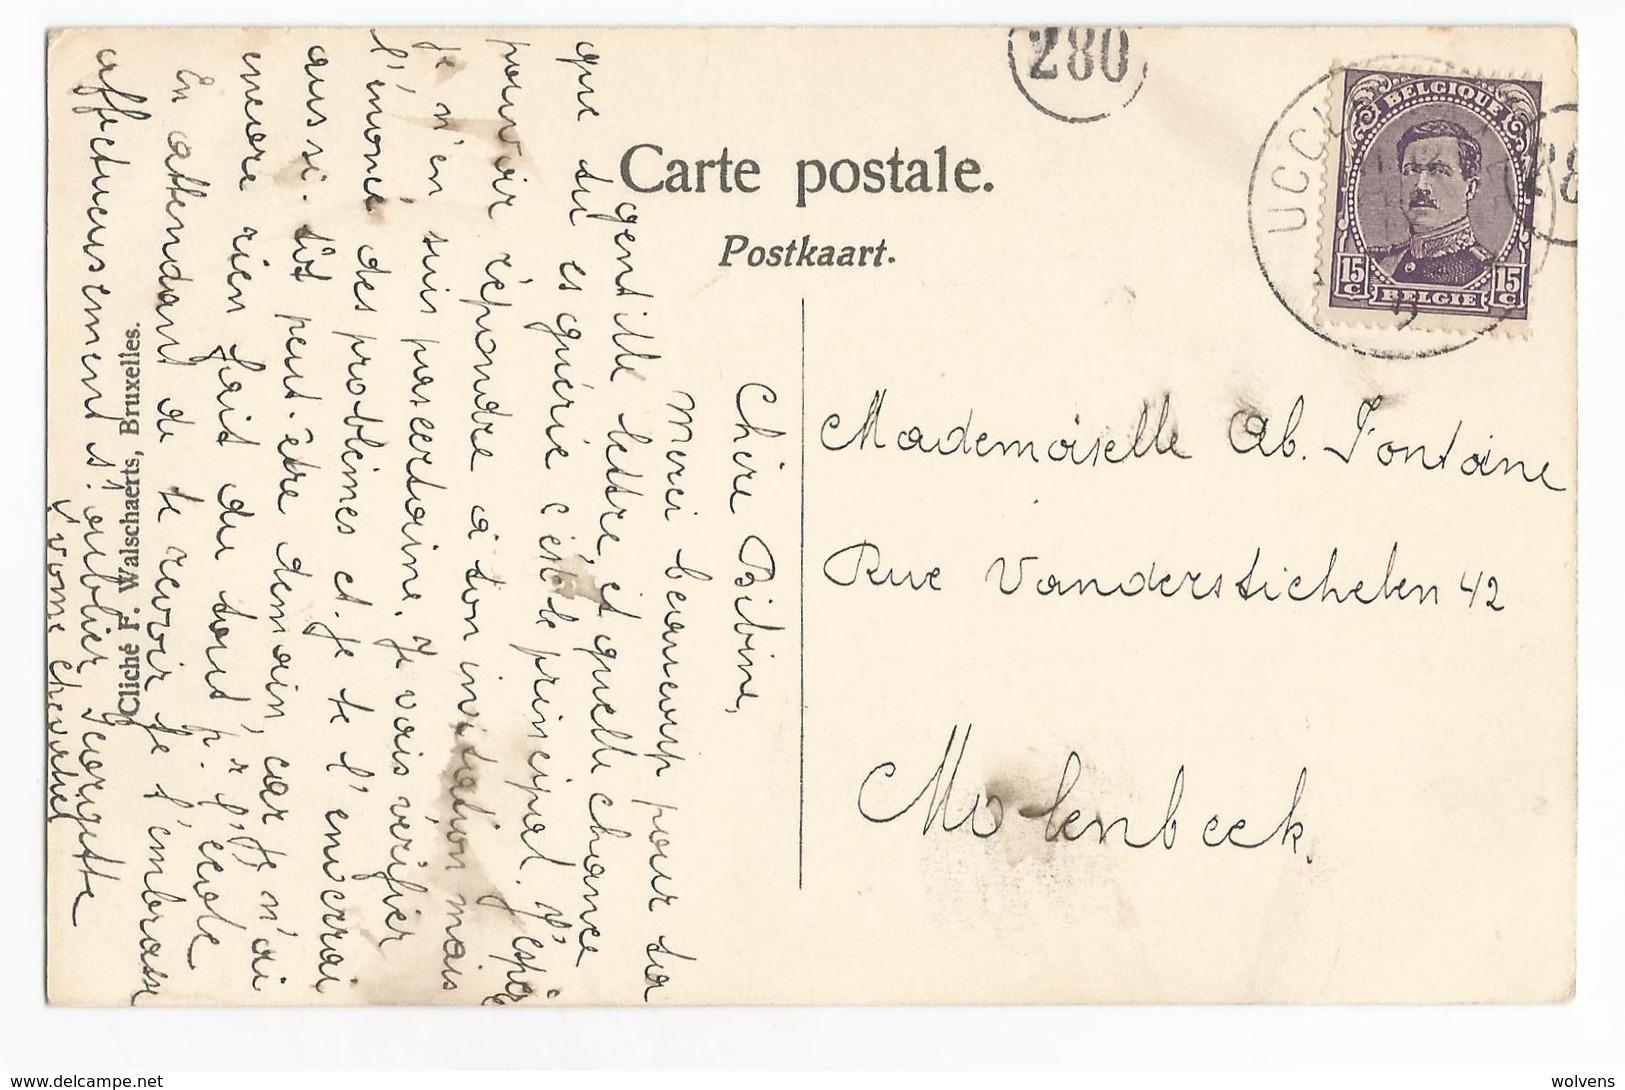 280
Carte postale.
Postkaart.
UCC
BELGIQUE
15 C
15 C
BELGIE
Mademoiselle Ab. Fontaine
Rue Vanderstichelen 42
Molenbeek.
Chère Bibine,
Merci beaucoup pour ta
gentille lettre, et quelle chance
que tu es guérie c'est le principal. J'espère
pouvoir répondre à ton invitation mais
je n'en suis pas certaine. Je vais vérifier
l'énoncé des problèmes et je te l'enverrai
aussi-tôt peut-être demain, car je n'ai
encore rien fait du tout p. r l'école
En attendant de te revoir je t'embrasse
affectueusement s. oublier Georgette
Yvonne
Cliché F. Walschaerts, Bruxelles.
wolvens